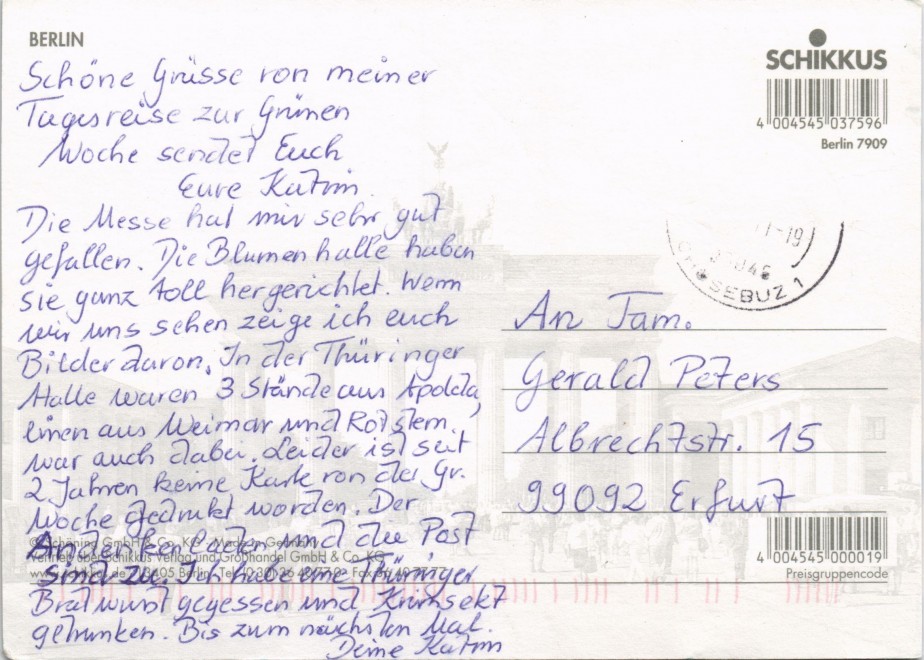 BERLIN
Schöne Grüsse von meiner
Tagesreise zur Grünen
Woche sendet Euch
Eure Katrin.
Die Messe hat mir sehr gut
gefallen. Die Blumenhalle haben
sie ganz toll hergerichtet. Wenn
wir uns sehen zeige ich euch
Bilder davon. In der Thüringer
Halle waren 3 Stände aus Apolda,
einen aus Weimar und Rotstern
war auch dabei. Leider ist seit
2 Jahren keine Karte von der Gr.
Woche gedruckt worden. Der
Andenkenladen und die Post
sind zu. Ich hab eine Thüringer
Bratwurst gegessen und Krimsekt
getrunken. Bis zum nächsten Mal.
Deine Katrin
SCHIKKUS
4 004545 037596
Berlin 7909
SEBUZ 1
An Fam.
Gerald Peters
Albrechtstr. 15
99092 Erfurt
4 004545 000019
Preisgruppencode
Schöning GmbH & Co. KG
Vertrieb über Schikkus Verlag und Großhandel GmbH & Co. KG